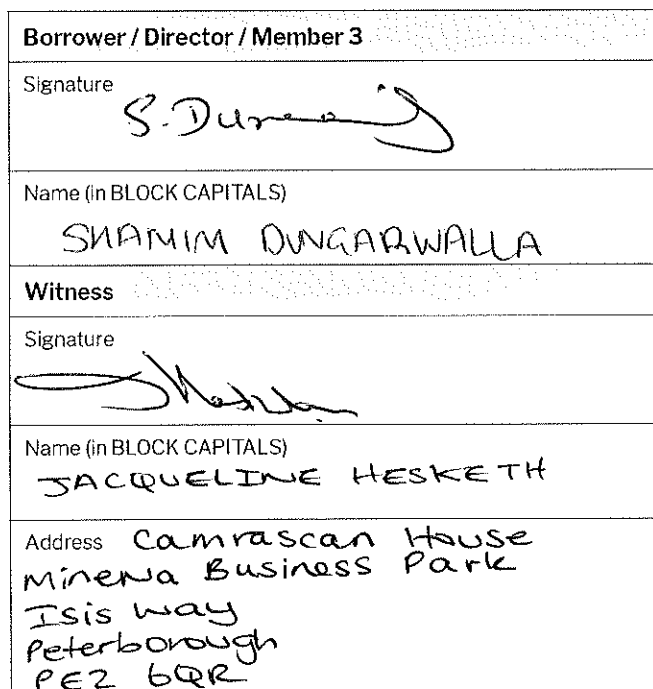 Borrower / Director / Member 3
Signature
S. Dun
Name (in BLOCK CAPITALS)
SHAMIM DUNGARWALLA
Witness
Signature
Name (in BLOCK CAPITALS)
JACQUELINE HESKETH
Address Camrascan House
Minerva Business Park
Isis Way
Peterborough
PE2 6QR